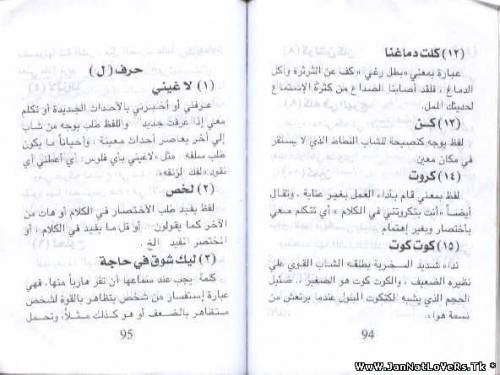 (١٢) كلت دماغنا
عبارة بمعني «بطل رغي» كف عن الثرثرة وأكل
الدماغ ، فلقد أصابنا الصداع من كثرة الإستماع
لحديثك الممل.
(١٣) كـن
لفظ يوجه كنصيحة للشاب النطاط الذي لا يستقر
في مكان معين
(١٤) كروت
لفظ بمعني قام بأداء العمل بغير عناية . وتقال
أيضـاً «أنت بتكروتني في الكلام» أي تتكلم معي
بأختصار وبغير إهتمام
(١٥) كوت كوت
نداء شديد السخرية يطلقه الشاب القوي علي
نظيره الضعيف ، والكوت كوت هو الصغير ، ضئيل
الحجم الذي يشبه الكتكوت المبلول عندما يرتعش من
نسمة هواء.
94
حرف (ل)
(١) لاغيني
عرفني أو أخبرني بالأحداث الجديدة أو تكلم
معي إذا عرفت جديد واللفظ طلب يوجه من شاب
إلي أخر يعاصر أحداث معينة ، وأحياناً ما يكون
طلب سلفه مثل «لاغيني بأي فلوس» أي أعطني أي
نقود «لفك لزنقه».
(٢) لخص
لفظ يفيد طلب الأختصار في الكلام أو هات من
الآخر كما يقولون أو قل ما يفيد في الكلام ،
أو اختصر المفيد الخ .
(٣) ليك شوق في حاجة
كلمة يجب عند سماعها أن تفر هارباً منها، فهي
عبارة إستفسار من شخص يتظاهر بالقوة لشخص
متظاهر بالضعف أو هو كذلك مثـلاً، وتحمل
95
Www.JanNatLoveRs.Tk *